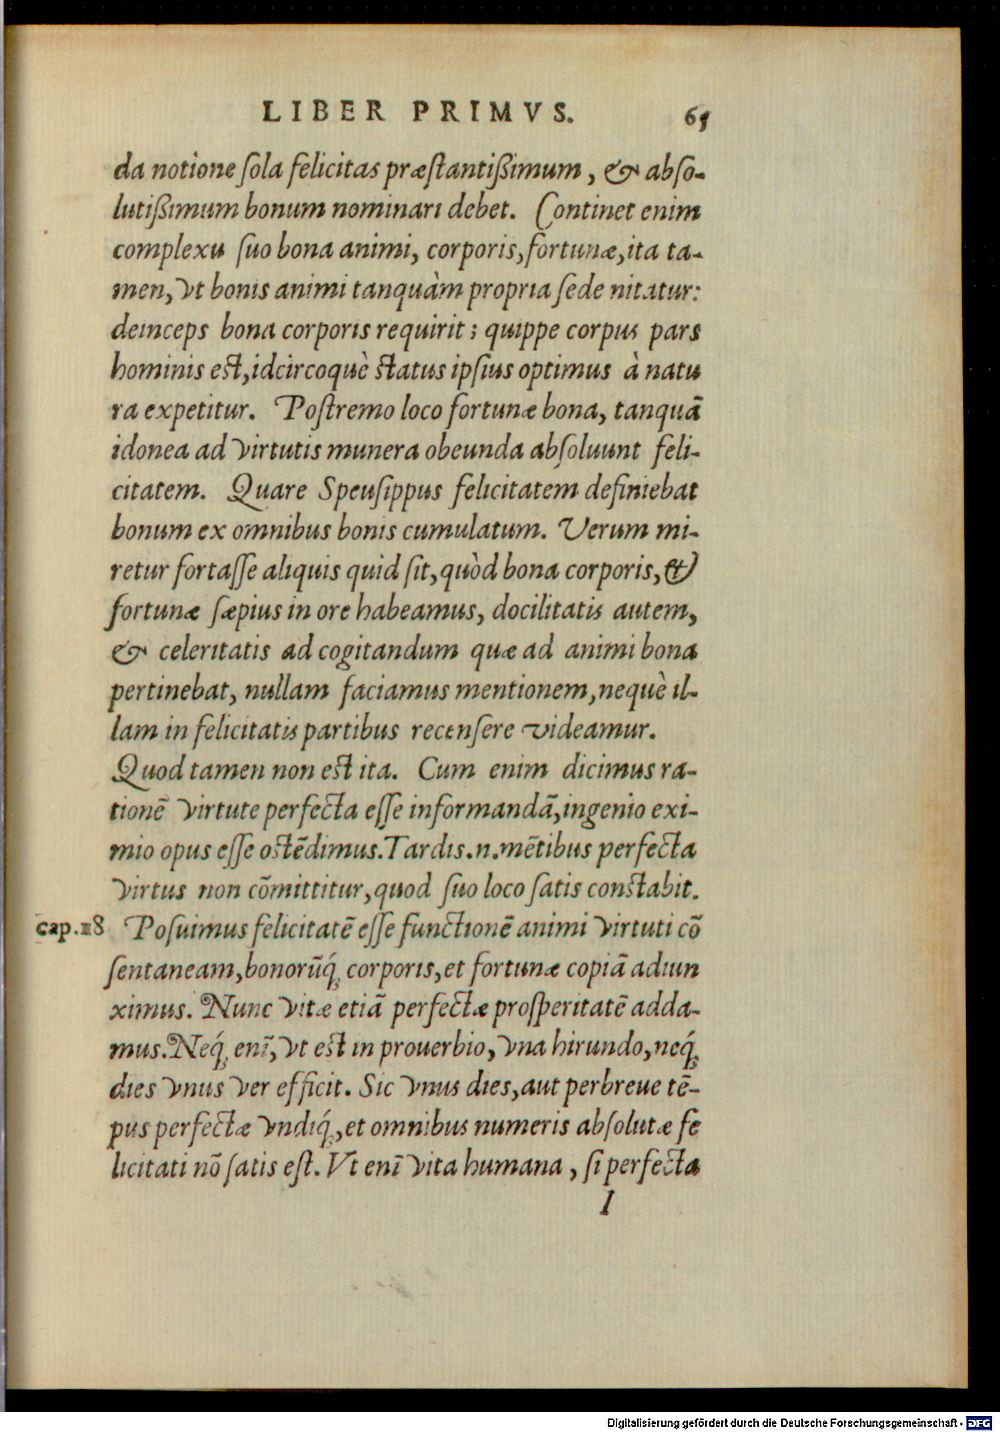 LIBER PRIMVS. 65
da notione ſola felicitas præſtantiſſimum, & abſo-
lutiſſimum bonum nominari debet. Continet enim
complexu ſuo bona animi, corporis, fortunæ, ita ta-
men, vt bonis animi tanquàm propria ſede nitatur:
deinceps bona corporis requirit; quippe corpus pars
hominis eſt, idcircoquè ſtatus ipſius optimus à natu
ra expetitur. Poſtremo loco fortunæ bona, tanquā
idonea ad virtutis munera obeunda abſoluunt feli-
citatem. Quare Speuſippus felicitatem definiebat
bonum ex omnibus bonis cumulatum. Verum mi-
retur fortaſſe aliquis quid ſit, quòd bona corporis, &
fortunæ ſæpius in ore habeamus, docilitatis autem,
& celeritatis ad cogitandum quæ ad animi bona
pertinebat, nullam faciamus mentionem, nequè il-
lam in felicitatis partibus recenſere videamur.
Quod tamen non eſt ita. Cum enim dicimus ra-
tionē virtute perfecta eſſe informandā, ingenio exi-
mio opus eſſe oſtēdimus. Tardis .n. mētibus perfecta
virtus non cōmittitur, quod ſuo loco ſatis conſtabit.
cap. 18 Poſuimus felicitatē eſſe functionē animi virtuti cō
ſentaneam, bonorūq́; corporis, et fortunæ copiā adiun
ximus. Nunc vitæ etiā perfectæ proſperitatē adda-
mus. Neq́; enī, vt eſt in prouerbio, vna hirundo, neq́;
dies vnus ver efficit. Sic vnus dies, aut perbreue tē-
pus perfectæ vndiq́;, et omnibus numeris abſolutæ fe
licitati nō ſatis eſt. Vt enī vita humana, ſi perfecta
I
Digitalisierung gefördert durch die Deutsche Forschungsgemeinschaft - DFG